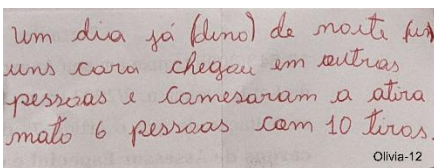 um dia já (dino) de noite (uns)
uns cara chegou em outras
pessoas e comesaram a atira
mato 6 pessoas com 10 tiros.
Olivia-12